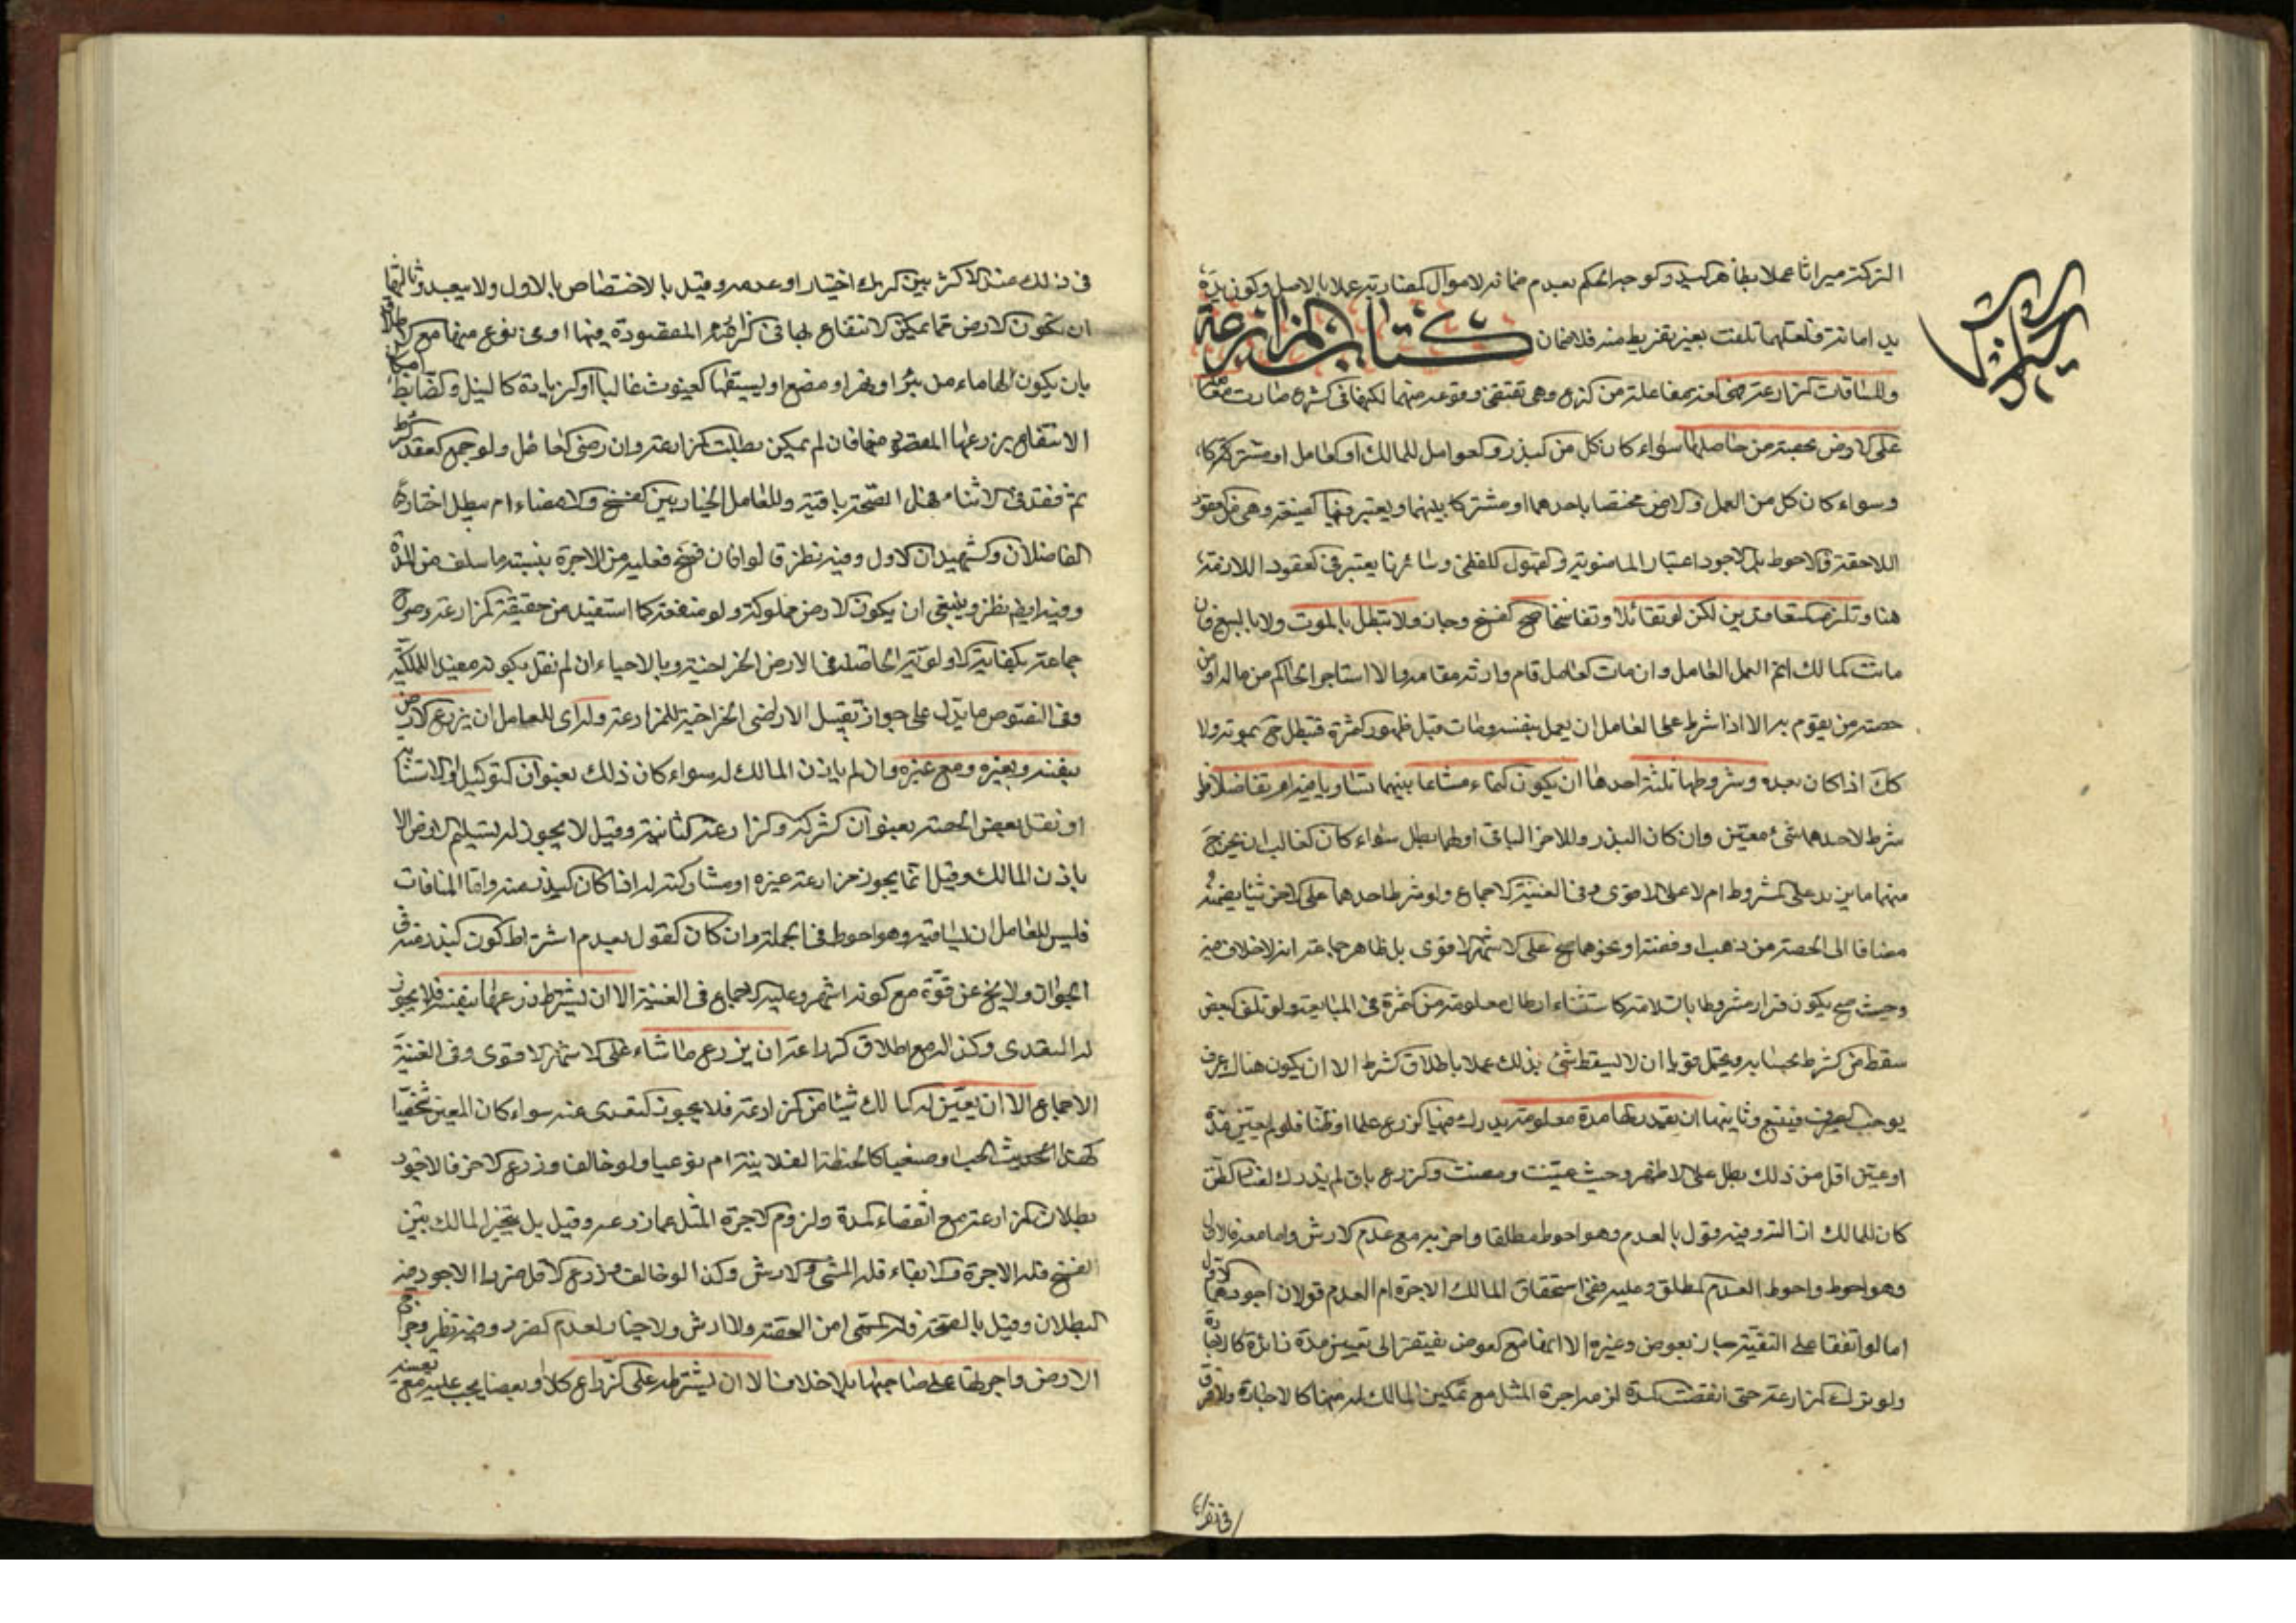 التركة ميراثا عملا بظاهر اليد والوجه الحكم بعدم ضمانه لاموال المضاربة عملا بالاصل وكون يده
يد امانة فلعلها تلفت بغير تفريط منه فلا ضمان كتاب المزارعة
والمساقات المزارعة مفاعلة من الزرع وهي تقتضي وقوعه منهما لكنها في الشرع صارت معاملة
على الارض بحصة من حاصلها سواء كان كل من البذر والعوامل للمالك او العامل او مشتركا
وسواء كان كل من العمل والارض مختصا باحدهما او مشتركا بينهما ويعتبر فيها الصيغة وهي من العقود
اللاحقة فالاحوط بل الاجود اعتبار الماضوية والقبول اللفظي وسائر ما يعتبر في العقود اللازمة
هنا وتلزم المتعاقدين لكن لو تقائلا وتفاسخا صح الفسخ وجاز ولا تبطل بالموت ولا بالبيع فان
مات المالك اتم العمل العامل وان مات العامل قام وارثه مقامه والا استاجر الحاكم من ماله او من
حصته من يقوم به الا اذا شرط على العامل ان يعمل بنفسه ومات قبل ظهور الثمرة فتبطل ح بموته ولا
كك اذا كان بعده وشروطها ثلثة احدها ان يكون النماء مشاعا بينهما تساويا فيه ام تفاضلا فلو
شرط لاحدهما شئ معين وان كان البذر وللاخر الباقي او لهما بطل سواء كان الغالب ان يخرج
منها ما يزيد على المشروط ام لا على الاقوى وفي الغنية الاجماع ولو شرط احدهما على الاخر شيئا يضمنه
مضافا الى الحصة من ذهب او فضة او نحوهما صح على الاشهر الاقوى بل ظاهر جماعة انه لا خلاف فيه
وحيث صح يكون قراره مشروطا بالسلامة كاستثناء ارطال معلومة من الثمرة في المبايعة ولو تلف البعض
سقط من الشرط بحسابه ويحتمل قويا ان لا يسقط شئ بذلك عملا باطلاق الشرط الا ان يكون هناك عرف
يوجب الصرف فيتبع وثانيها ان يقدر لها مدة معلومة يدرك فيها الزرع علما او ظنا فلو لم يعين مدة
او عين اقل من ذلك بطل على الاظهر وحيث عينت ومضت والزرع باق لم يدرك لفساد الظن
كان للمالك ازالته وفيه قول بالعدم وهو احوط مطلقا واجزيه مع عدم الارش واما معه فالاول
وهو احوط واحوط العدم المطلق وعليه ففي استحقاق المالك الاجرة ام العدم قولان اجودهما الاول
اما لو اتفقا على التبقية جاز بعوض وغيره الا انها مع العوض يفتقر الى تعيين مدة زائدة كالاجارة
ولو ترك المزارعة حتى انقضت المدة لزمه اجرة المثل مع تمكين المالك له منها كالاجارة ولا فرق
في ذلك عند الاكثر بين الترك اختيارا وعدمه وقيل بالاختصاص بالاول ولا يبعد وثالثها
ان تكون الارض مما يمكن الانتفاع بها في الزراعة المقصودة منها او في نوع منها مع الاطلاق
بان يكون لها ماء من بئر او نهر او مصنع او يسقيها الغيوث غالبا او الزيادة كالنيل والضابط امكان
الانتفاع بزرعها المقصود منها فان لم يمكن بطلت المزارعة وان رضى العامل ولو جمع العقد الشرائط
ثم فقد في الاثناء فهل الصحة باقية وللعامل الخيار بين الفسخ والامضاء ام يبطل اختاره
الفاضلان والشهيدان الاول وفيه نظر قالوا فان فسخ فعليه من الاجرة بنسبة ما سلف من المدة
وفيه ايضا نظر وينبغي ان يكون الارض مملوكة ولو منفعة كما استفيد من حقيقة المزارعة وصرح
جماعة بكفاية الاولوية الحاصلة في الارض الخراجية وبالاحياء ان لم نقل بكونه مفيدا للملكية
وفي النصوص ما يدل على جواز تقبيل الاراضي الخراجية للمزارعة وله اي للعامل ان يزرع الارض
بنفسه وبغيره ومع غيره وان لم ياذن المالك له سواء كان ذلك بعنوان التوكيل او الاستنابة
او نقل بعض الحصة بعنوان الشركة والمزارعة الثانية وقيل لا يجوز له تسليم الارض الا
باذن المالك وقيل انما يجوز مزارعة غيره او مشاركته له اذا كان البذر منه واما المساقات
فليس للعامل ان يساقيه وهو احوط في الجملة وان كان القول بعدم اشتراط كون البذر منه في
الجواز لا يخ عن قوة مع كونه اشهر وعليه الاجماع في الغنية الا ان يشترط زرعها بنفسه فلا يجوز
له التعدي وكذا له مع اطلاق المزارعة ان يزرع ما شاء على الاشهر الاقوى وفي الغنية
الاجماع الا ان يعين له المالك شيئا من الزراعة فلا يجوز التعدي عنه سواء كان المعين شخصيا
كهذا الحب او صنفيا كالحنطة الفلانية ام نوعيا ولو خالف وزرع الاضر فالاجود
بطلان المزارعة مع انقضاء المدة ولزوم الاجرة المثل عما زرعه وقيل بل يتخير المالك بين
الفسخ فله الاجرة والابقاء فله المسمى والارش وكذا لو خالف وزرع الاقل ضررا الاجود فيه
البطلان وقيل بالصحة فله المسمى من الحصة ولا ارش ولا خيار لعدم الضرر وفيه نظر وخراج
الارض واجرتها على صاحبها بلا خلاف الا ان يشترطه على الزراع كلا او بعضا يجب عليه مع تعيينه